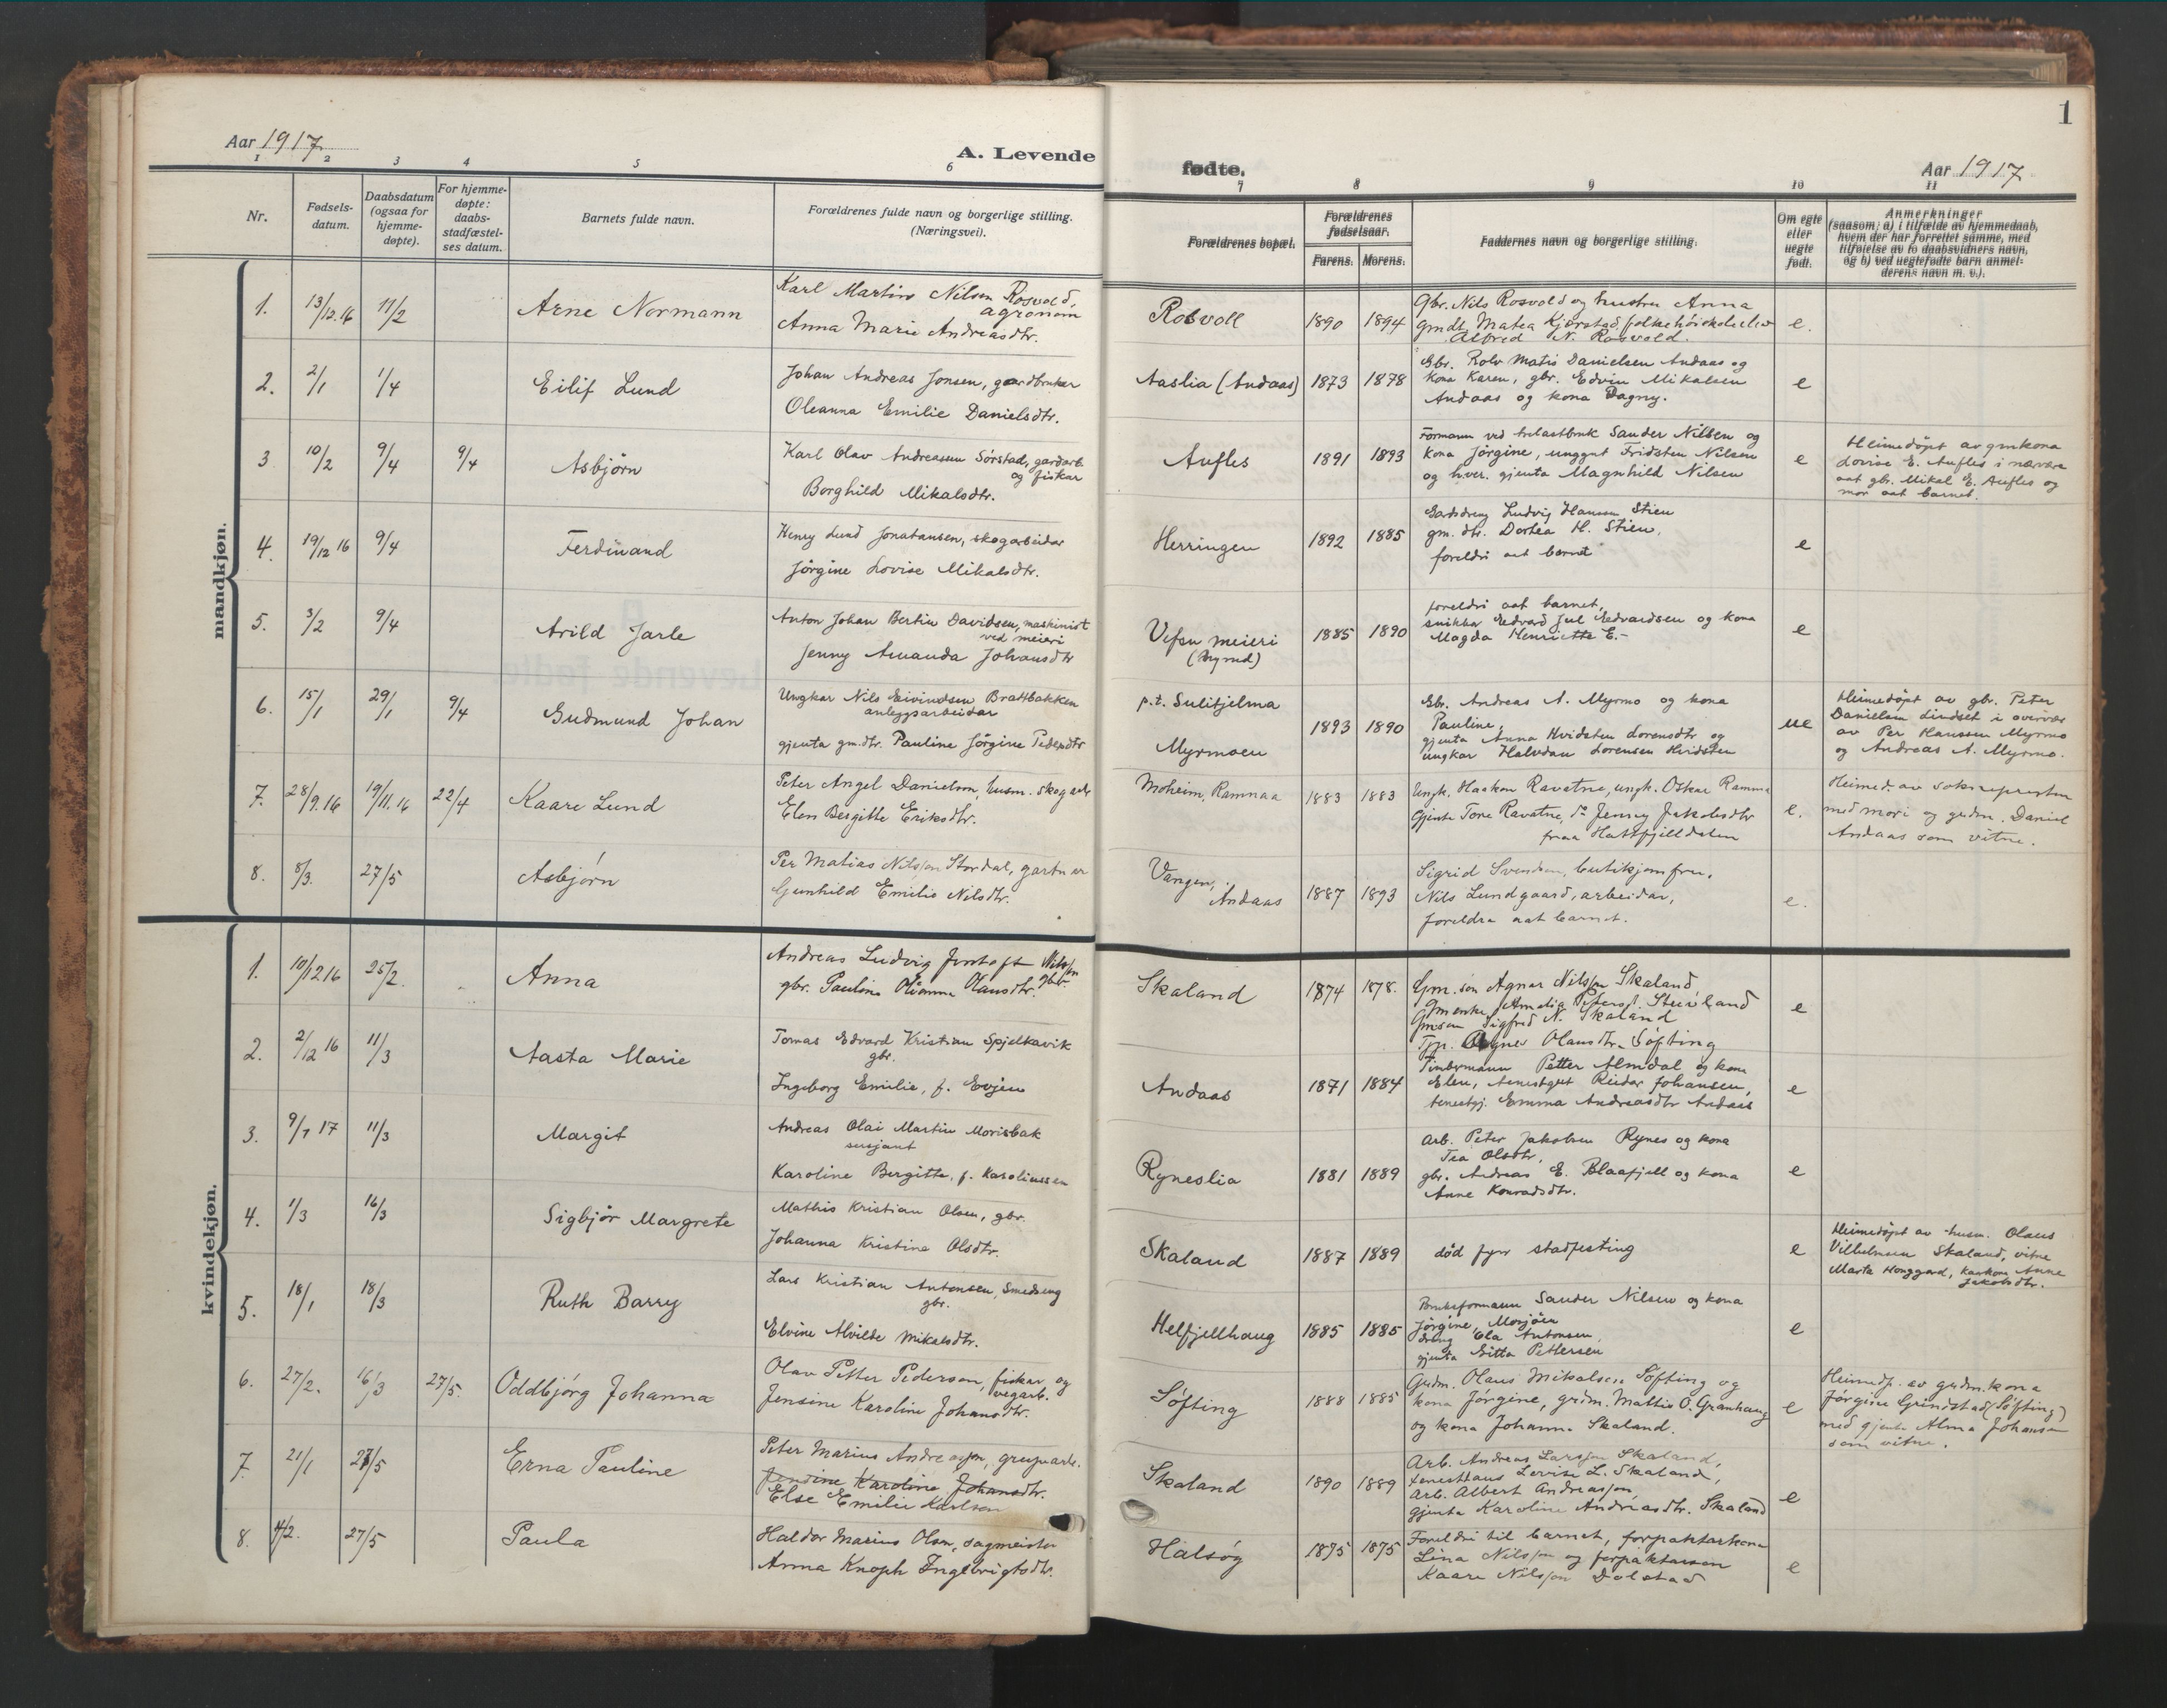 Aar 1917
A. Levende
1 2 3 4 5 6
Nr.
Fødsels-
datum.
Daabsdatum
(ogsaa for
hjemme-
døpte).
For hjemme-
døpte:
daabs-
stadfæstel-
ses datum.
Barnets fulde navn.
Forældrenes fulde navn og borgerlige stilling.
(Næringsvei).
mandkjøn.
1. 13/12.16 11/2 Arne Normann
Karl Martin Nilsen Rosvold,
agronom
Anna Marie Andreasdtr.
2. 2/1 1/4 Eilif Lund
Johan Andreas Jonsen, gardbruker
Oleanna Emilie Danielsdtr.
3 10/2 9/4 9/4 Asbjørn
Karl Olav Andreassen Sørstad, gardarb.
og fiskar
Borghild Mikalsdtr.
4. 19/12 16 9/4 Ferdinand
Henry Lund Jonatansen, skogarbeidar
Jörgine Lovise Mikalsdtr.
5. 3/2 9/4 Arild Jarle
Anton Johan Bertin Davidsen, maskinist
ved meieri
Jenny Amanda Johansdtr
6. 15/1 29/1 9/4 Gudmund Johan
Ungkar Nils Eivindsen Brattbakken
anleggsarbeidar
gjenta gm.dtr. Pauline Jörgine Pedersdtr
7. 28/9.16 19/11.16 22/4 Kaare Lund
Peter Angel Danielsen, husm. skogarb
Elen Bergitte Eriksdtr.
8. 8/3. 27/5 Asbjørn
Per Matias Nilsson Stordal, gartner
Gunhild Emilie Nilsdtr.
kvindekjøn.
1. 10/12 16 25/2. Anna
Andreas Ludvig Nilsson
gbr.
gbr. Pauline Olianna Olausdtr.
2. 2/12 16 11/3 Aasta Marie
Tomas Edvard Kristian Spjelkavik
gbr.
Ingeborg Emilie, f. Evjen
3. 9/1 17 11/3 Margit
Andreas Olai Martin Morisbak
sersjant
Karoline Bergitte, f. Karoliussen
4. 1/3 16/3 Sigbjør Margrete
Mathis Kristian Olsen, gbr.
Johanna Kristine Olsdtr.
5. 18/1 18/3 Ruth Barry
Lars Kristian Antonsen, Smedseng
gbr.
Elvine Alvilde Mikalsdtr.
6. 27/2. 16/3 27/5. Oddbjørg Johanna
Olav Petter Pedersen, fiskar og
vegarb.
Jensine Karoline Johansdtr.
7. 21/1 27/5 Erna Pauline
Peter Marius Andreassen, gruvearb.
Jensine Karoline Johansdtr.
Else Emilie Karlsen
8. 4/2. 27/5 Paula
Haldor Marius Olsen, sagmeister
Anna Knoph Ingebrigtsdtr.
1
fødte.
Aar 1917
7 8 9 10 11
Forældrenes bopæl.
Forældrenes
fødselsaar.
Farens. Morens.
Faddernes navn og borgerlige stilling.
Om egte
eller
uegte
født.
Anmerkninger
(saasom: a) i tilfælde av hjemmedaab,
hvem der har forrettet samme, med
tilføielse av to daabsvidners navn,
og b) ved uegtefødte barn anmel-
derens navn m. v.).
Rosvoll 1890 1894
Gbr. Nils Rosvold og hustru Anna
Gmdt. Matea Kjørstad, folkehøiskoleelev
Alfred N. Rosvold.
e.
Aaslia (Andaas) 1873 1878
Gbr. Rolv Matis Danielsen Andaas og
kona Karen, gbr. Edvin Mikalsen
Andaas og kona Dagny.
e
Aufles 1891 1893
Formann ved Sander Nilsen og
kona Jörgine, unggut Fridsten Nilsen
og h.ver. gjenta Magnhild Nilsen
e
Heimedöpt av gmkona
Lovise E. Aufles i nærvære
aat gbr. Mikal E. Aufles og
mor aat barnet.
Herringen 1892 1885
Gardsdreng Ludvig Hansen Stien
gm. dtr. Dortea H. Stien,
foreldri aat barnet
e
Vefsn meieri
(Bynd)
1885 1890
foreldri aat barnet,
snikkar Edvard Jul Edvardsen og kona
Magda Henriette E.-
e
p.t. Sulitjelma
Myrmoen
1893 1890
Gbr. Andreas A. Myrmo og kona
Pauline,
gjenta Anna Hvidsten Lorensdtr og
ungkar Halvdan Lorensen Hvidsten
ue
Heimedöpt av gbr. Peter
Danielsen Lindset i overvær
av Per Hanssen Myrmo
og Andreas A. Myrmo.
Moheim, Ramnaa 1883 1883
Ungk. Haakon Ravatne, ungk. Oskar Ramnaa
Gjenta Tone Ravatne, do Jenny Jakobsdtr
fraa Hattfjelldalen
e.
Heimed. av soknepresten
med mori og grdm. Daniel
Andaas som vitne.
Vangen,
Andaas
1887 1893
Sigrid Svendsen, butikjomfru.
Nils Lundgaard, arbeidar,
foreldra aat barnet.
e.
Skaland 1874 1878.
Gm. søn Agnar Nilssen Skaland,
Gmenke Amalia Petersd. Steivland
Gmsøn Sigfred N. Skaland
Tjp. Agnes Olausdtr. Söfting
e
Andaas 1871 1884
Timbrmann Petter Almdal og kona
Elen, tenestgut Reidar Johansen,
tenestgj. Emma Andreasdtr Andaas
e
Ryneslia 1881 1889
Arb. Peter Jakobsen Rynes og kona
Tea Olsdtr,
gbr. Andreas E. Blaafjell og kona
Anne Konradsdtr.
e
Skaland 1887 1889
död fyrr stadfesting
e
Heimedöpt av husm. Olaus
Vilhelmsen Skaland, vitne
Marta Honggard, Anne
Jakobsdtr.
Helfjellhaug 1885 1885
Bruksformann Sander Nilsen og kona
Jörgine, Mosjøen
dreng Ola Antonsen,
gjenta Gitta Pettersen
e
Söfting 1888 1885
Grdm. Olaus Mikalsen Söfting og
kona Jörgine, grdm. Mattis O. Granhaug
og kona Johanna Skaland.
e
Heimedp. av grdm.kona
Jörgine Grindstad (Söfting)
med gjenta Alma Johansen
som vitne.
Skaland 1890 1889
Arb. Andreas Larssen Skaland,
Lovise L. Skaland,
Arb. Albert Andreassen
gjenta Karoline Andreasdtr. Skaland
e
Halsøy 1875 1875
Foreldri til barnet, forpaktarkona
Lina Nilssen og forpaktarson
Kaare Nilssen Dolstad
e